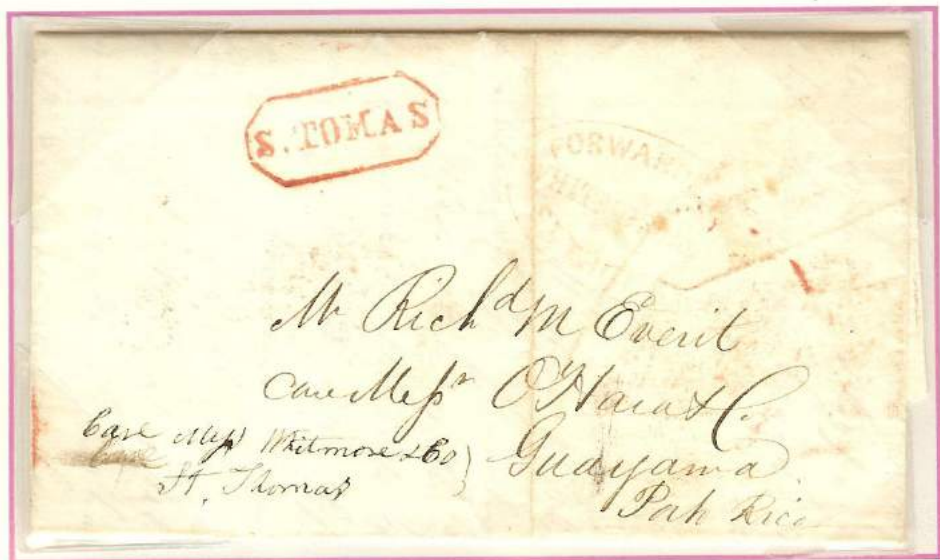 S. TOMAS
FORWAR
Mr Richd M Everit
care Messrs O'Hara & Co.
Guayama
Porto Rico
Care Messrs Whitmore & Co
St. Thomas